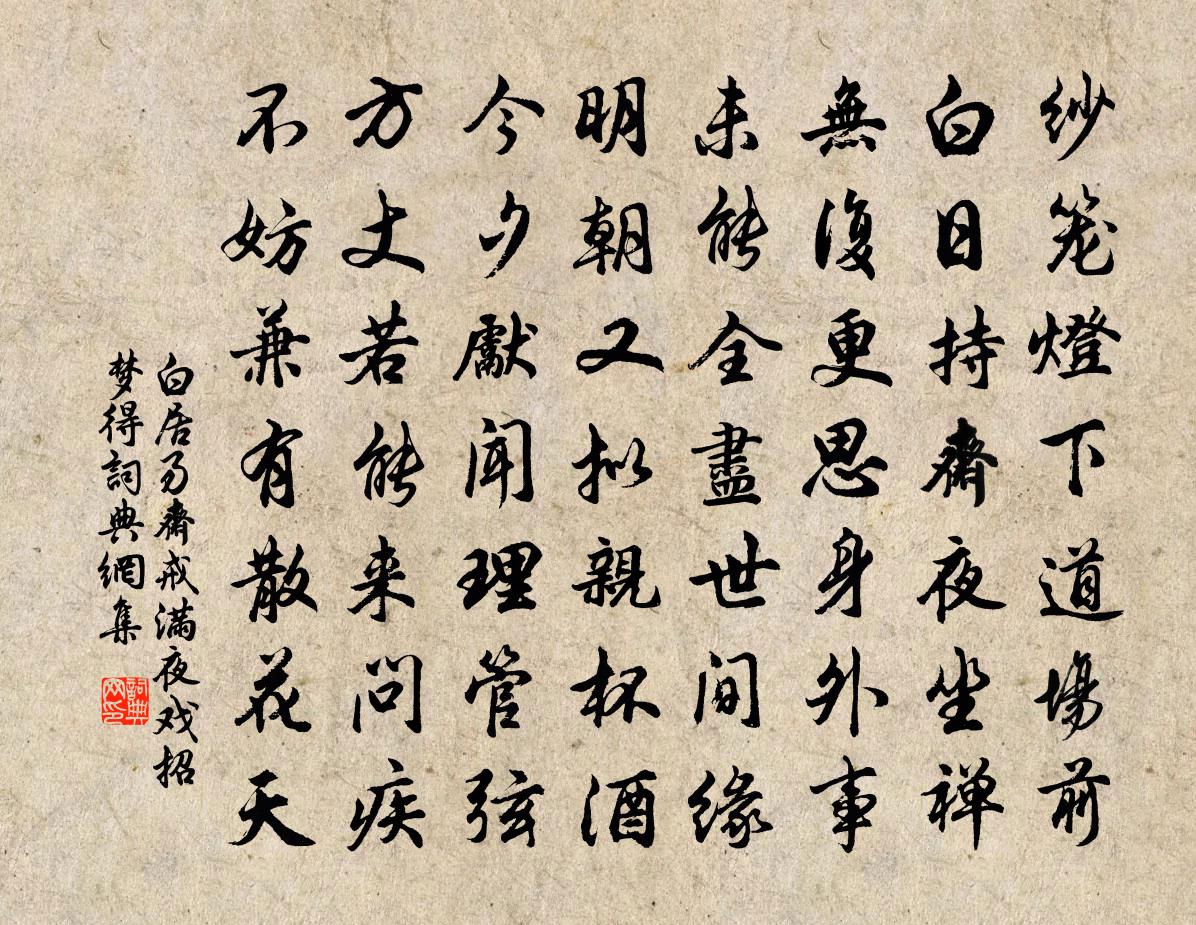 纱笼燈下道場前
白日持齋夜坐禅
無復更思身外事
未能全盡世间緣
明朝又拟親杯酒
今夕先聞理管弦
方丈若能来问疾
不妨兼有散花天
白居易齋戒满夜戏招
梦得詞典網集
詞典網印